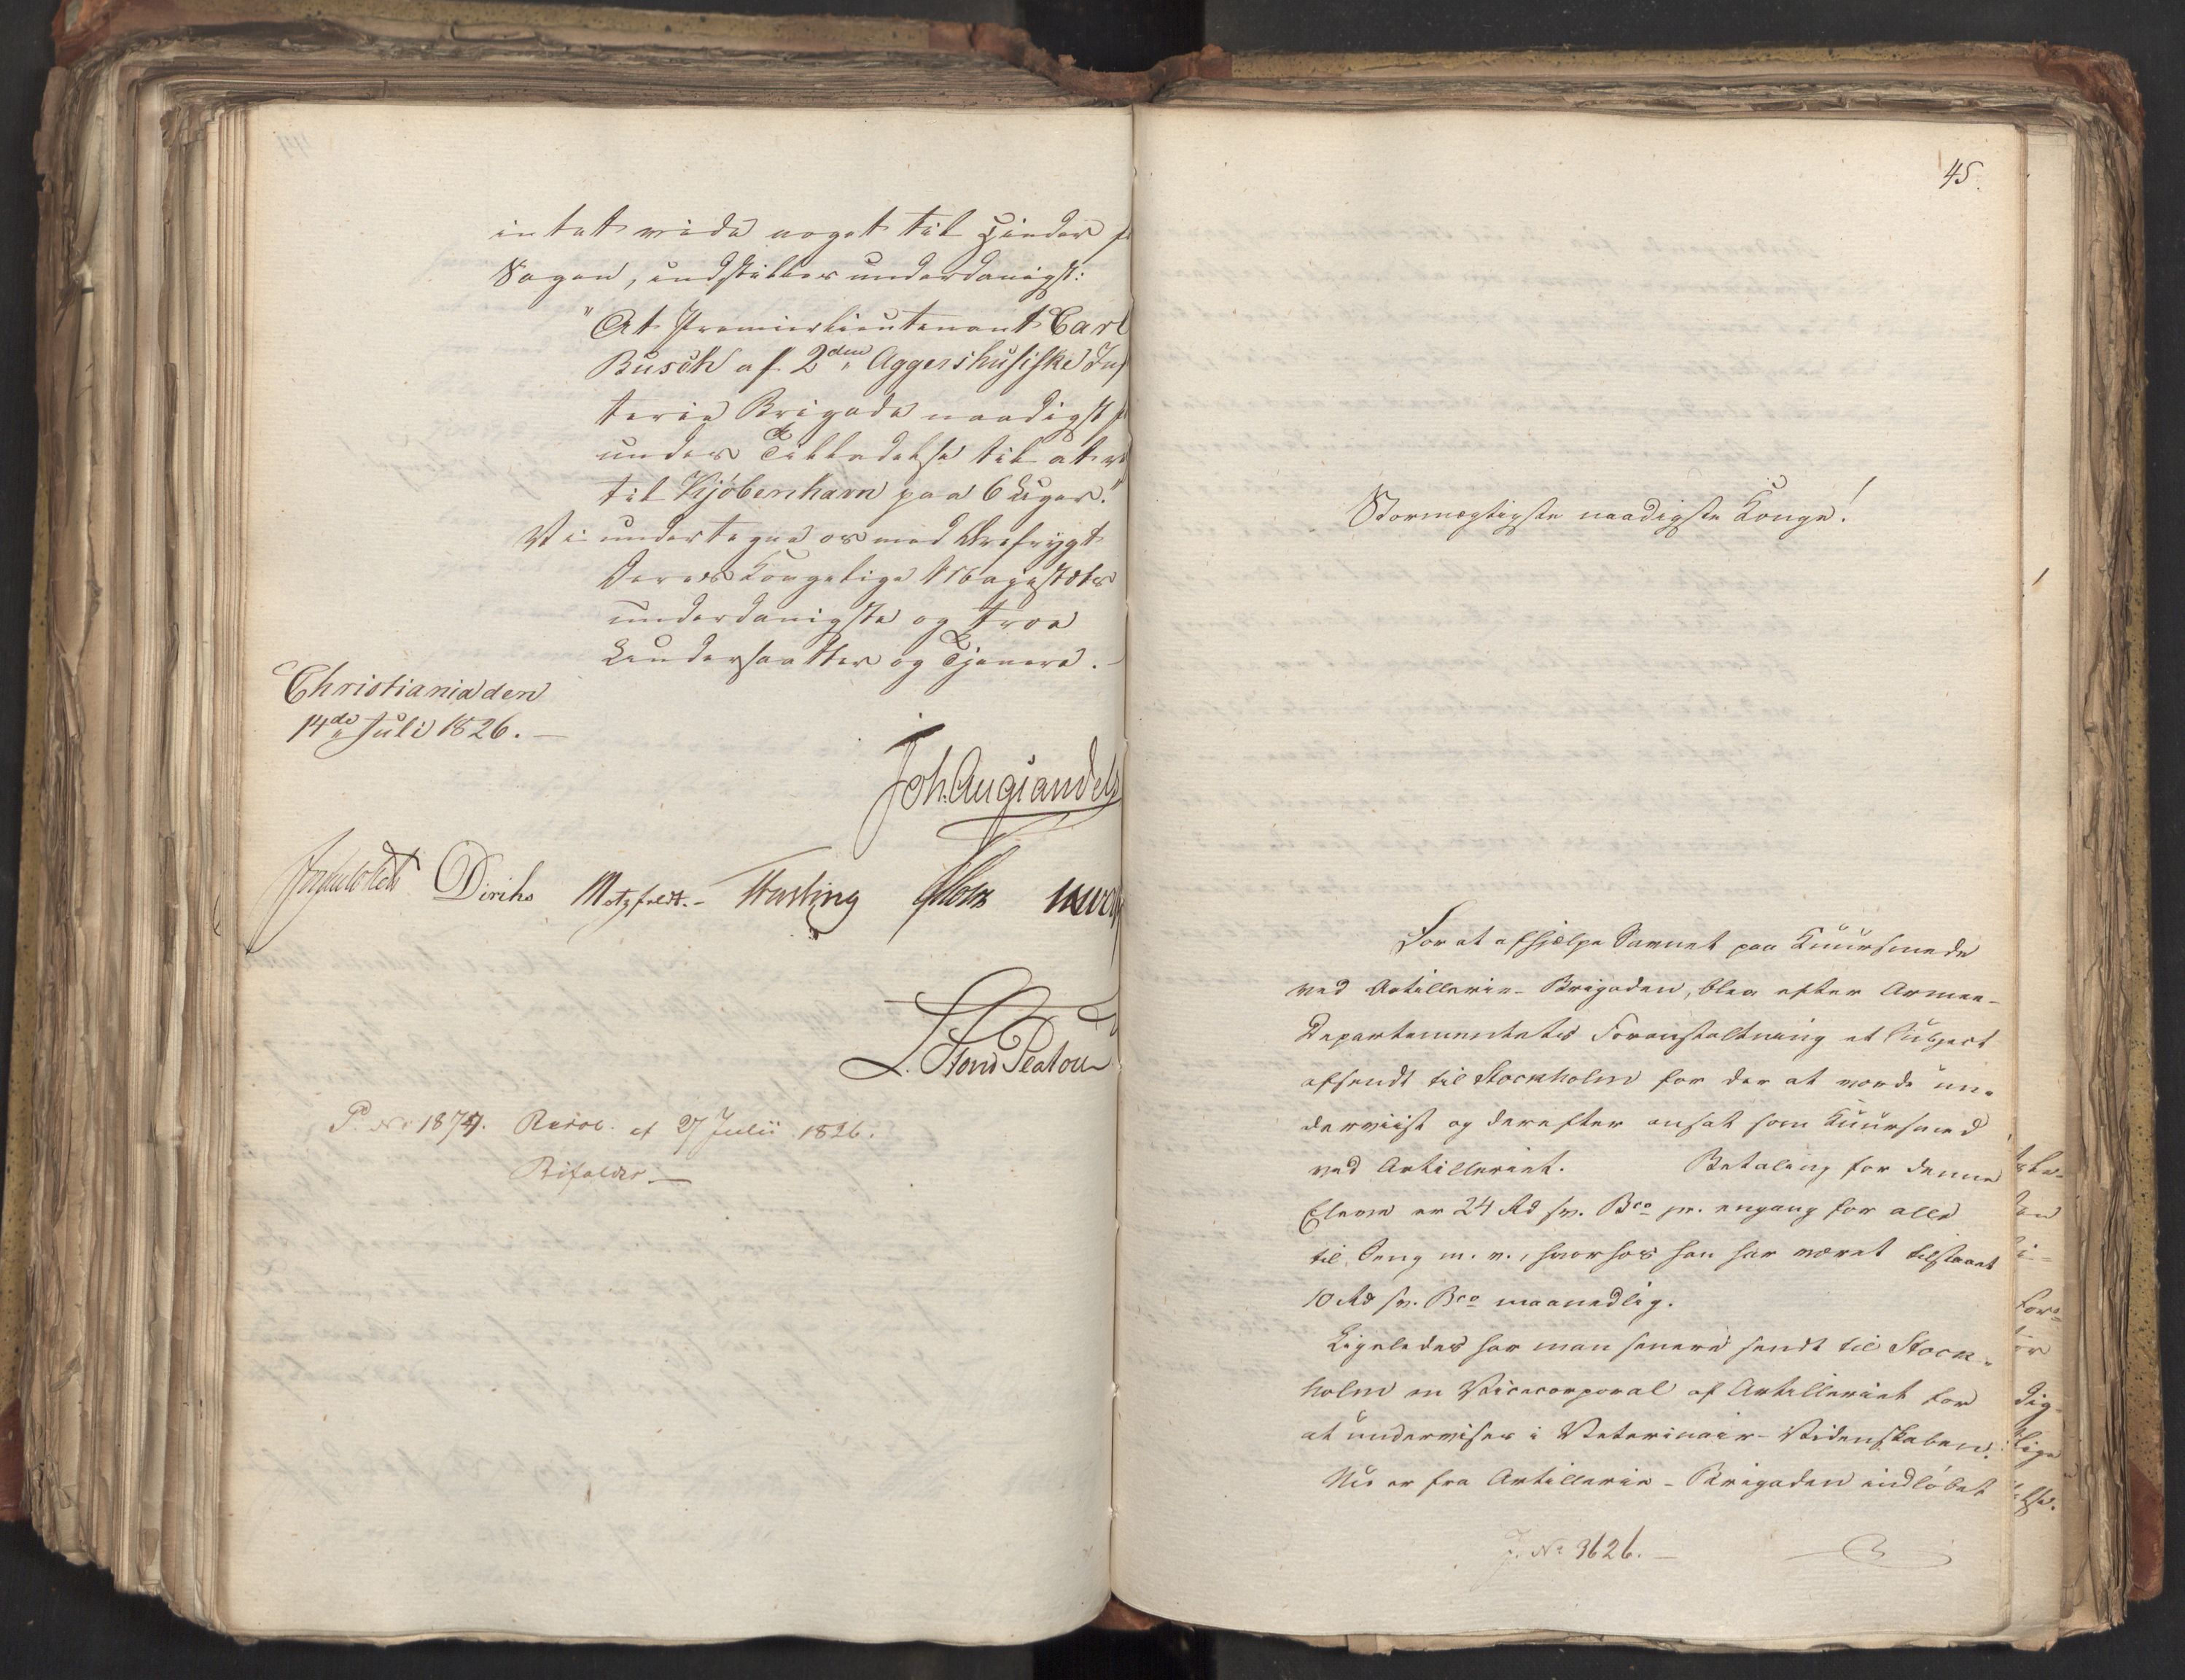 intet være noget til Hinder f
Sagen, indstilles underdanigst:
"At Premierlieutenant Carl
Busch af 2den Aggershusiske Inf
terie Brigade naadigst f
undes Tilladelse til at re
til Kjøbenhavn paa 6 Uger."
Vi undertegne os med Ærefrygt
Deres Kongelige Majestæts
underdanigste og troe
Undersaatter og Tjenere. -
Christiania den
14de Juli 1826. -
Joh. Aug Sandels
Diriks Motzfeldt. - Fasting Holst
L. Stoud Platou
P. No 1874. Resol. af 27 Julii 1826.
Bifaldes. -
45.
Stormægtigste naadigste Konge!
For at afhjælpe Savnet paa Kuursmede
ved Artillerie-Brigaden, blev efter Armee-
Departementets Foranstaltning et Subject
afsendt til Stockholm for der at vorde un-
derviist og derefter ansat som Kuursmed
ved Artilleriet. Betaling for denne
Eleve er 24 Rd sv. Bco pr. engang for alle
til Seng m. v., hvorhos han har været tilstaaet
10 Rd sv. Bco maanedlig.
Ligeledes har man senere sendt til Stock-
holm en Vicecorporal af Artilleriet for
at undervises i Veterinair-Videnskaben.
Nu er fra Artillerie-Brigaden indløbet
J. No 3626. -